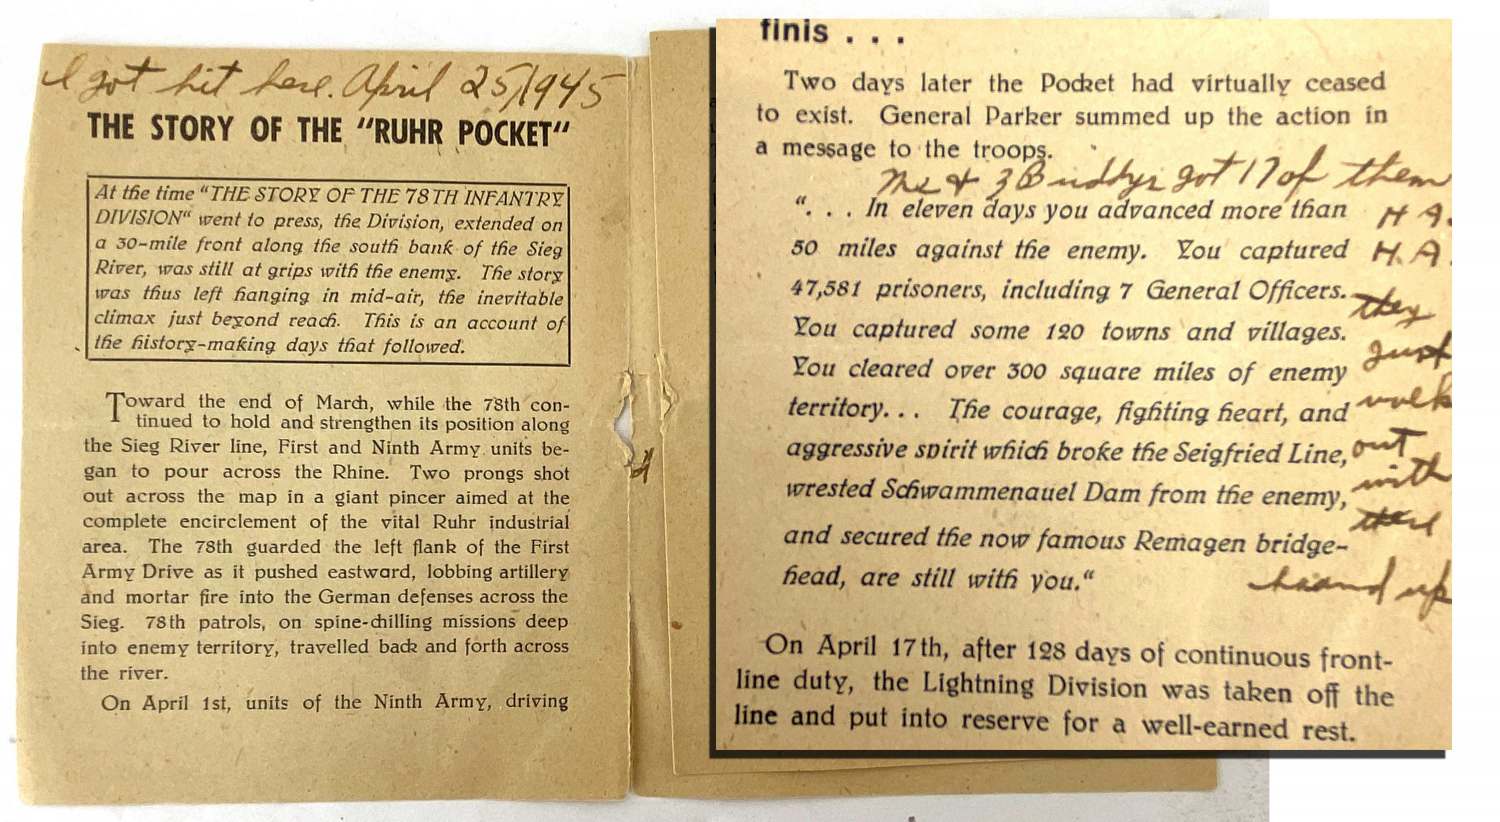 I got hit here. April 25/1945
THE STORY OF THE "RUHR POCKET"
At the time "THE STORY OF THE 78TH INFANTRY
DIVISION" went to press, the Division, extended on
a 30-mile front along the south bank of the Sieg
River, was still at grips with the enemy. The story
was thus left hanging in mid-air, the inevitable
climax just beyond reach. This is an account of
the history-making days that followed.
Toward the end of March, while the 78th con-
tinued to hold and strengthen its position along
the Sieg River line, First and Ninth Army units be-
gan to pour across the Rhine. Two prongs shot
out across the map in a giant pincer aimed at the
complete encirclement of the vital Ruhr industrial
area. The 78th guarded the left flank of the First
Army Drive as it pushed eastward, lobbing artillery
and mortar fire into the German defenses across the
Sieg. 78th patrols, on spine-chilling missions deep
into enemy territory, travelled back and forth across
the river.
On April 1st, units of the Ninth Army, driving
finis . . .
Two days later the Pocket had virtually ceased
to exist. General Parker summed up the action in
a message to the troops.
Me & 3 Buddys got 17 of them
". . . In eleven days you advanced more than
50 miles against the enemy. You captured
47,581 prisoners, including 7 General Officers.
You captured some 120 towns and villages.
You cleared over 300 square miles of enemy
territory. . . The courage, fighting heart, and
aggressive spirit which broke the Seigfried Line,
wrested Schwammenauel Dam from the enemy,
and secured the now famous Remagen bridge-
head, are still with you."
H A.
H. A.
they
just
walk
out
with
there
haand up
On April 17th, after 128 days of continuous front-
line duty, the Lightning Division was taken off the
line and put into reserve for a well-earned rest.